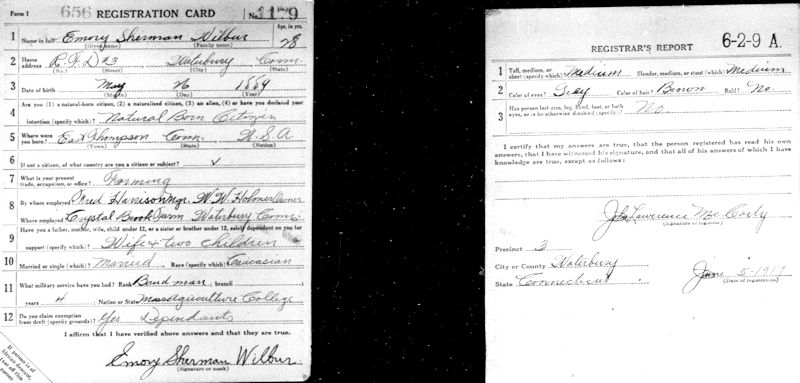 Form 1 656 REGISTRATION CARD No. 179
Age, in yrs.
1 Name in full Emory Sherman Wilbur 28
(Given name) (Family name)
2 Home address R.F.D #3 Waterbury Conn.
(No.) (Street) (City) (State)
3 Date of birth May 26 1889
(Month) (Day) (Year)
4 Are you (1) a natural-born citizen, (2) a naturalized citizen, (3) an alien, (4) or have you declared your
intention (specify which)? Natural Born Citizen
5 Where were you born? East Thompson Conn. U.S.A
(Town) (State) (Nation)
6 If not a citizen, of what country are you a citizen or subject? ✓
7 What is your present trade, occupation, or office? Farming
8 By whom employed? Fred Harrison Mgr. W.W. Holmes Owner
Where employed? Crystal Brook Farm Waterbury Conn.
9 Have you a father, mother, wife, child under 12, or a sister or brother under 12, solely dependent on you for
support (specify which)? Wife & two Children
10 Married or single (which)? Married Race (specify which)? Caucasian
11 What military service have you had? Rank Band man; branch
years 4 Nation or State Mass Agriculture College
12 Do you claim exemption from draft (specify grounds)? Yes Dependants
I affirm that I have verified above answers and that they are true.
Emory Sherman Wilbur
(Signature or mark)
If person is of
African descent,
tear off this
corner
REGISTRAR'S REPORT 6-2-9 A.
1 Tall, medium, or short (specify which)? Medium Slender, medium, or stout (which)? Medium
2 Color of eyes? Gray Color of hair? Brown Bald? No.
3 Has person lost arm, leg, hand, foot, or both
eyes, or is he otherwise disabled (specify)? No.
I certify that my answers are true, that the person registered has read his own
answers, that I have witnessed his signature, and that all of his answers of which I have
knowledge are true, except as follows:
John Lawrence McCarty
(Signature of registrar)
Precinct 3
City or County Waterbury
State Connecticut June 5-1917
(Date of registration)